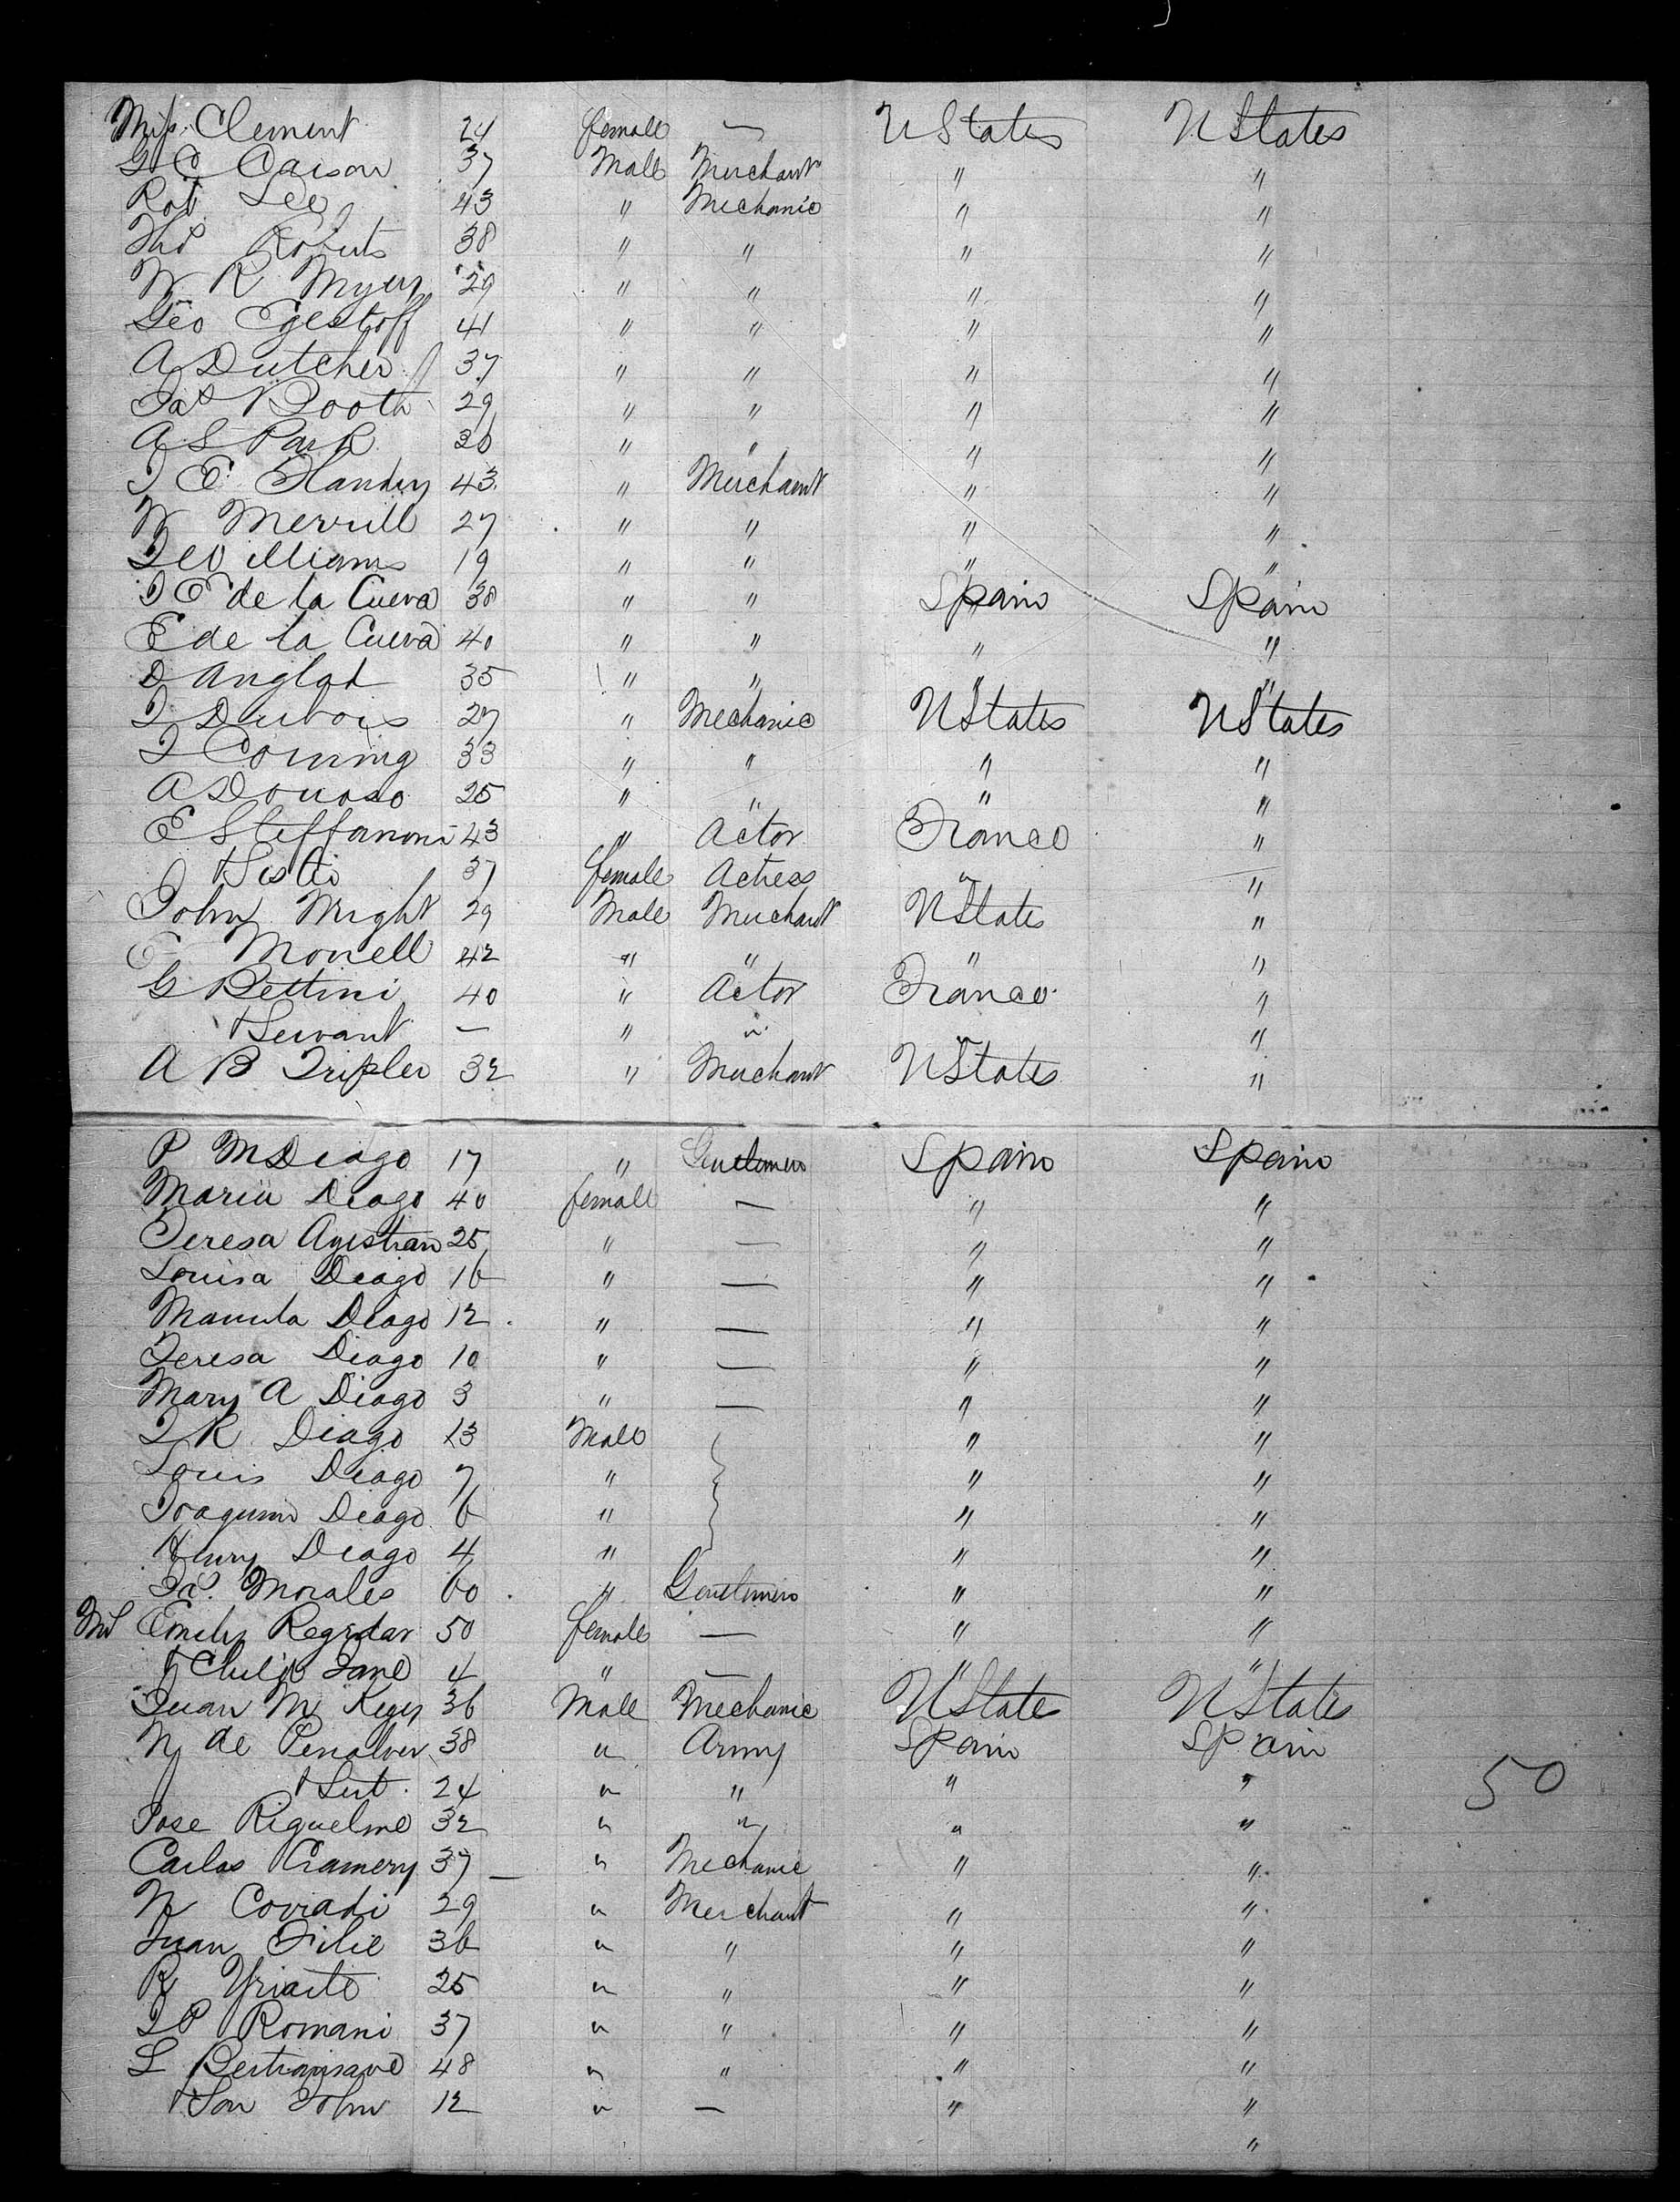 Miss Clement 24 female — U States U States
G C Carson 37 Male Merchant " "
Robt Lee 43 " Mechanic " "
Thos Roberts 38 " " " "
W R Myers 29 " " " "
Geo Egestoff 41 " " " "
A Dutcher 37 " " " "
Jas Booth 29 " " " "
A S Park 30 " " " "
J E 43 " Merchant " "
W Merrill 27 " " " "
J Williams 19 " " " "
J E de la Cueva 38 " " Spain Spain
E de la Cueva 40 " " " "
D Anglad 35 " " " "
J Dubois 27 " Mechanic U States U States
J Corning 33 " " " "
A Donoso 25 " " " "
E Steffanoni 43 " Actor France "
37 female Actress " "
John Wright 29 Male Merchant U States "
Monell 42 " " " "
G Bettini 40 " Actor France "
& Servant — " " " "
A B Tripler 32 " Merchant U States "
P M Diago 17 " Gentlemen Spain Spain
Maria Diago 40 female — " "
Teresa 25 " — " "
Louisa Diago 16 " — " "
Manuela Diago 12 " — " "
Teresa Diago 10 " — " "
Mary A Diago 3 " — " "
J R Diago 13 Male " "
Louis Diago 7 " " "
Joaquim Diago 6 " " "
Henry Diago 4 " " "
Jas. Morales 60 " Gentlemen " "
Mrs Emily 50 female — " "
& Child Jane 4 " — " "
Juan M 36 Male Mechanic U State U States
N de Penalver 38 " Army Spain Spain
& Sert 24 " " " "
Jose Riquelme 32 " " " "
Carlos 37 — " Mechanic " "
N Corradi 29 " Merchant " "
Juan 36 " " " "
R Yriarte 25 " " " "
J P Romani 37 " " " "
L 48 " " " "
& Son John 12 " — " "
"
50